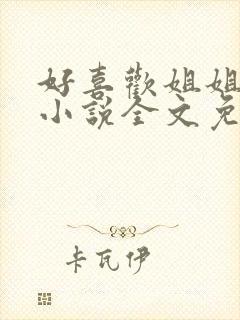 好喜歡姐姐
小說全文免
卡瓦伊